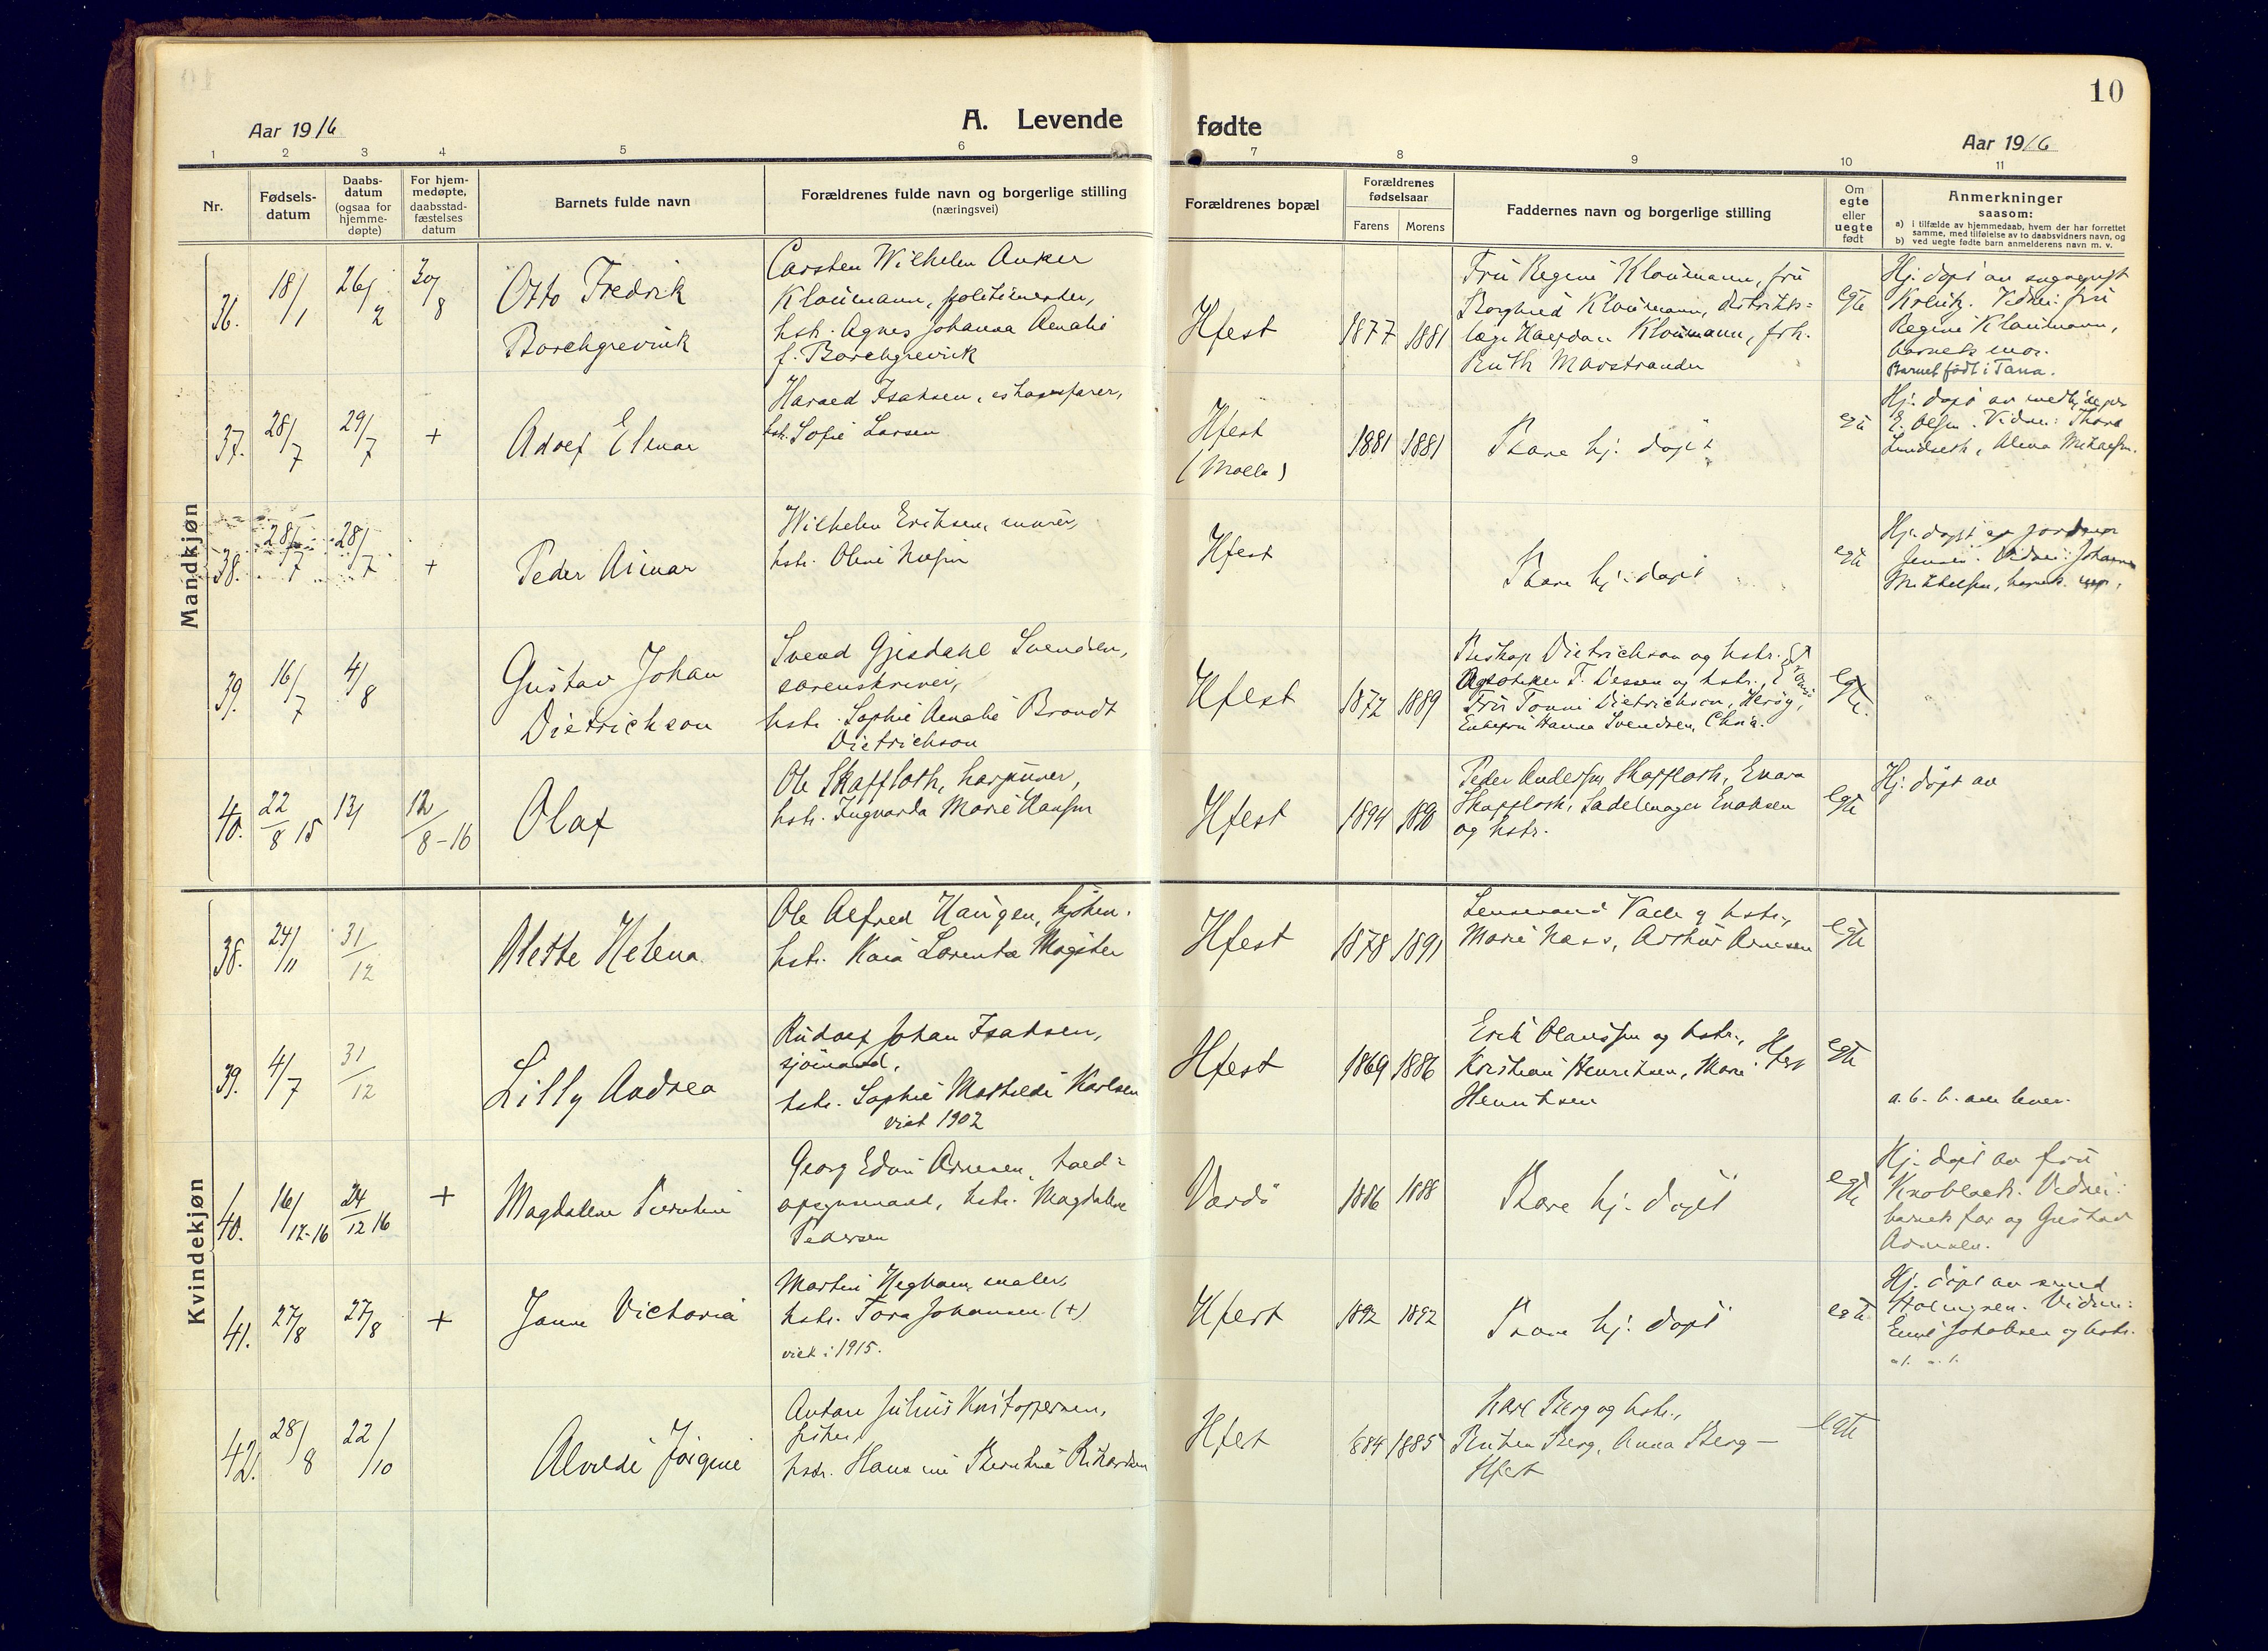 10
Aar 1916
A. Levende
fødte
Aar 1916
1 2 3 4 5 6 7 8 9 10 11
Nr.
Fødsels-
datum
Daabs-
datum
(ogsaa for
hjemme-
døpte)
For hjem-
medøpte,
daabsstad-
fæstelses
datum
Barnets fulde navn
Forældrenes fulde navn og borgerlige stilling
(næringsvei)
Forældrenes bopæl
Forældrenes
fødselsaar
Farens Morens
Faddernes navn og borgerlige stilling
Om
egte
eller
uegte
født
Anmerkninger
saasom:
a) i tilfælde av hjemmedaab, hvem der har forrettet
samme, med tilføielse av to daabsvidners navn, og
b) ved uegte fødte barn anmelderens navn m. v.
Mandkjøn
36.
18/1
26/2
30/8
Otto Fredrik
Borchgrevink
Carsten Wilhelm Anker
Kloumann, politimester,
hstr. Agnes Johanna Amalie
f. Borchgrevink
Hfest
1877 1881
Fru Regine Kloumann, fru
Borghild Kloumann, distrikts-
læge Kloumann, frk.
Ruth Marstrander
egte
Hj. døpt av
Vidner: fru
Regine Kloumann,
barnets mor.
Barnet født i Tana.
37.
28/7
29/7
+
Adolf Elmar
Harald Isaksen, ishavsfarer,
hstr. Sofie Larsen
Hfest
(Molla)
1881 1881
Bare hj. døpt
egte
Hj. døpt av
E. Olsen. Vidner: Thora
Lundseth, Alma
38.
28/7
28/7
+
Peder Aimar
Wilhelm Eriksen, murer,
hstr. Oline
Hfest
Bare hj. døpt
egte
Hj. døpt av jordmor
Jensen. Vidner: Johanne
Mikkelsen, barnets mor.
39.
16/7
4/8
Gustav Johan
Dietrichson
Svend Gjesdahl Svendsen,
sorenskriver,
hstr. Sophie Amalie Brandt
Dietrichson
Hfest
1872 1889
Biskop Dietrichson og hstr.
Apoteker F. Dessen og hstr.,
Fru Tonni Dietrichson,
Enkefru Hanna Svendsen, Chria.
egte.
40.
22/8 15
13/
12/8-16
Olaf
Ole Skaffloth, harpuner,
hstr. Ingvarda Marie Hansen
Hfest
1894 1890
Peder Andersen Skaffloth,
Skaffloth, Sadelmager
og hstr.
egte
Hj. døpt av
Kvindekjøn
38.
24/11
31/12
Mette Helena
Ole Alfred Haugen,
hstr. Kaia Lorentze
Hfest
1878 1891
og hstr.,
Marie Arthur Arnesen
egte
39.
4/7
31/12
Lilly Andrea
Rudolf Johan Isaksen,
sjømand,
hstr. Sophie Mathilde Karlsen
viet 1902
Hfest
1869 1886
Erik og hstr.,
Kristian Henriksen, Marie Hfest
Henriksen
egte
a. b. b. alle lever.
40.
16/12-16
24/12 16
+
Magdalene Bernthine
Georg Edvin Arnesen, told-
opsynmand, hstr. Magdalene
Pedersen
Vardø
1886 1888
Bare hj. døpt
egte
Hj. døpt av fru
Knoblock. Vidner:
barnets far og Gustav
Arnesen.
41.
27/8
27/8
+
Janne Victoria
Martin maler,
hstr. Tora Johansen (+)
viet i 1915.
Hfest
1892 1892
Bare hj. døpt
egte
Hj. døpt av smed
Holmgren. Vidner:
Emil Jakobsen og hstr.
42.
28/8
22/10
Alvilde Jørgine
Anton Julius Kristoffersen,
fisker,
hstr. Hansine Bernthine Rikardsen
Hfest
1884 1885
Karl Berg og hstr.,
Berg, Anna Berg –
Hfest
egte